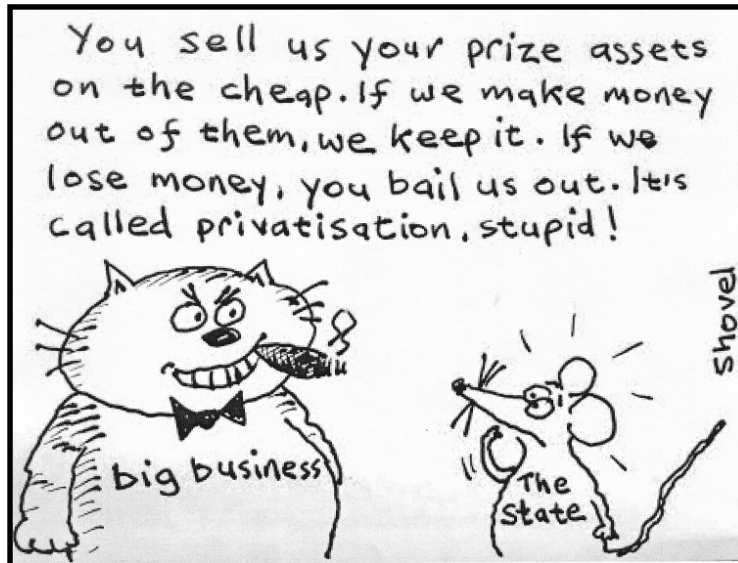 You sell us your prize assets
on the cheap. If we make money
out of them, we keep it. If we
lose money, you bail us out. It's
called privatisation, stupid!
shovel
big business
The
State